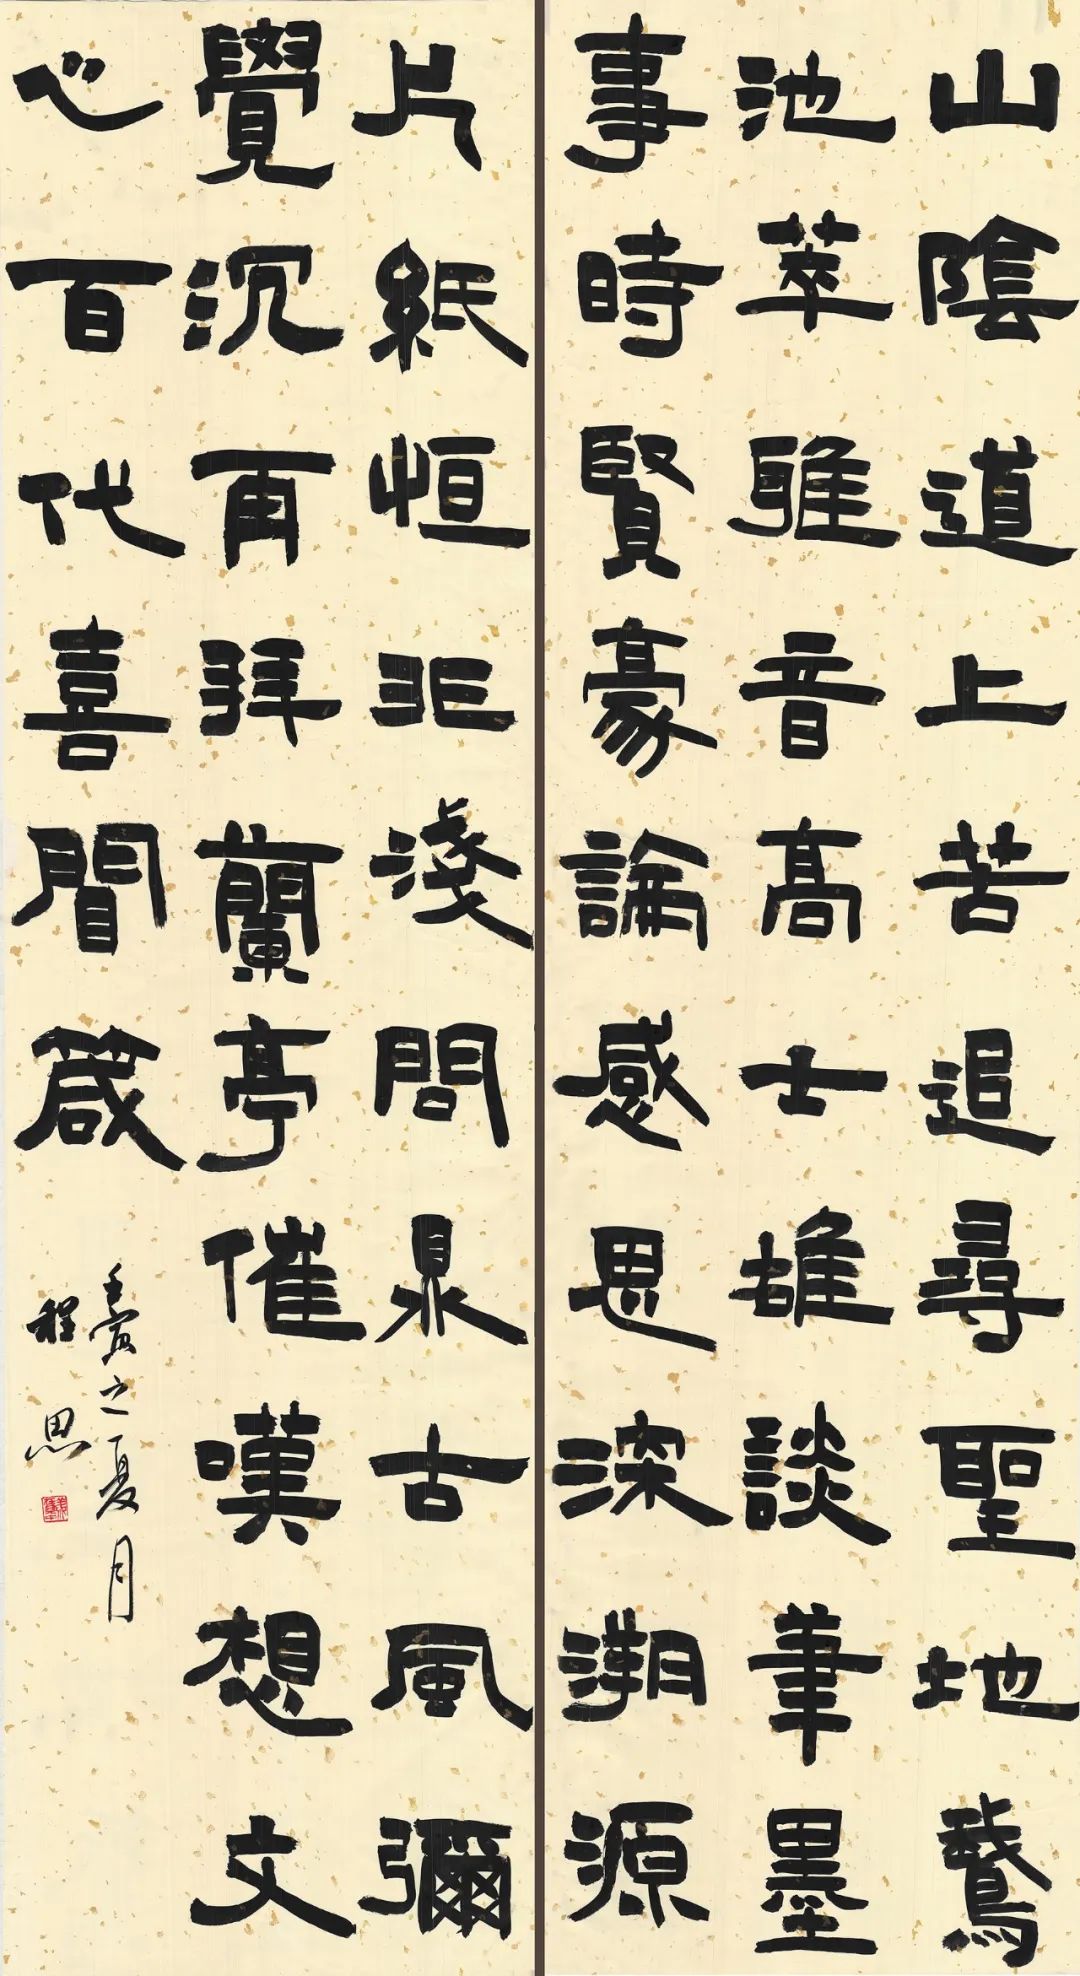 山陰道上苦追尋聖地鵞
池萃雅音高士雄談筆墨
事時賢豪論感思深溯源
片紙恒非淺問泉古風彌
覺沉再拜蘭亭催嘆想文
心百代喜間箴
壬寅之夏月
程思